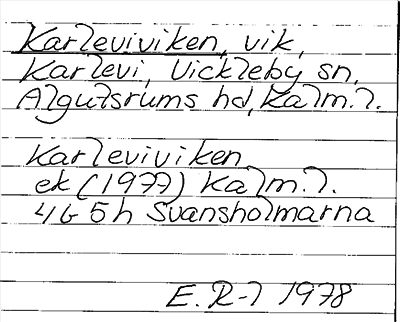 Karleviviken, vik,
Karlevi, Vickleby sn,
Algutsrums hd, Kalm.l.
Karleviviken
ek (1977) Kalm.l.
4G 5h Svansholmarna
E. R-l 1978